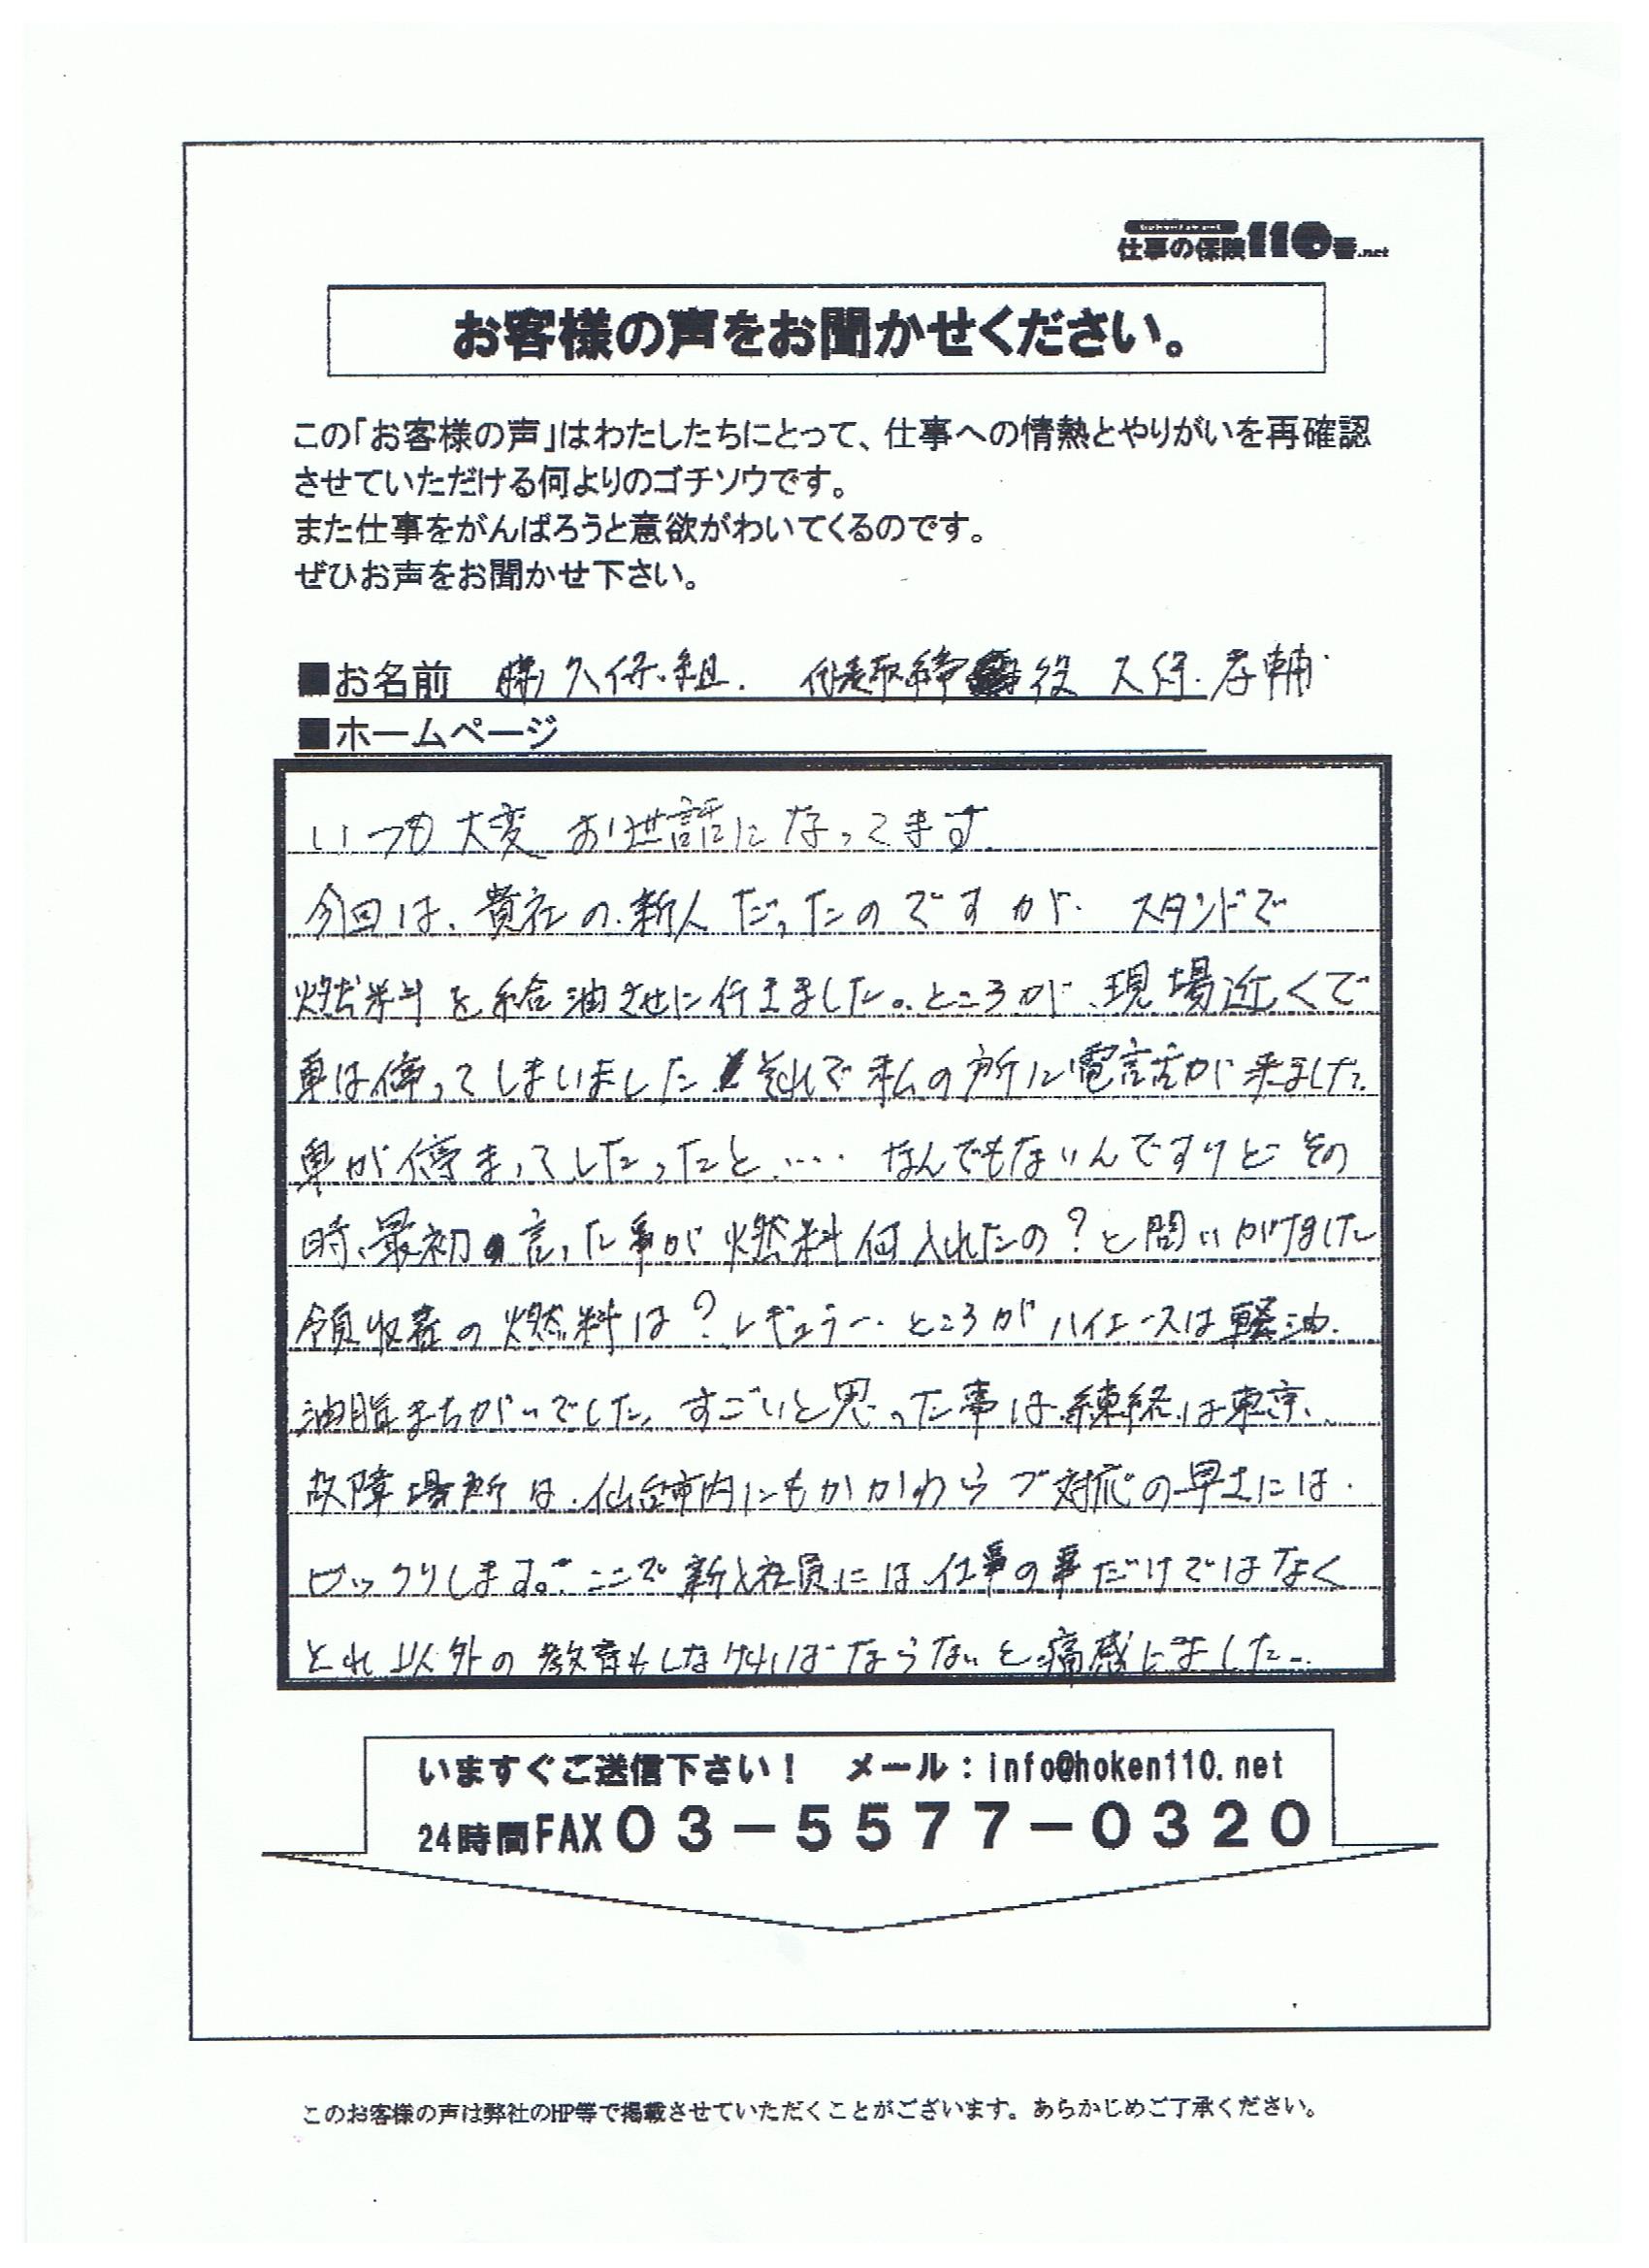 仕事の保険110番.net
お客様の声をお聞かせください。
この「お客様の声」はわたしたちにとって、仕事への情熱とやりがいを再確認
させていただける何よりのゴチソウです。
また仕事をがんばろうと意欲がわいてくるのです。
ぜひお声をお聞かせ下さい。
■お名前 久保組. 代表取締役 久保孝輔
■ホームページ
いつも大変お世話になってます.
今回は、貴社の新人だったのですが スタンドで
燃料を給油させに行きました。ところが、現場近くで
車は停ってしまいました それで私の所に電話が来ました。
車が停まってしたったと…. なんでもないんですけど その
時、最初 言った事が燃料何入れたの?と問いかけました
領収書の燃料は?レギュラー.ところがハイエースは軽油.
油脂まちがいでした。すごいと思った事は練絡は東京、
故障場所は、仙台市内にもかかわらづ対応の早さには.
ビックリします。ここで新入社員には仕事の事だけではなく
とれ以外の教育もしなければならないと痛感しました..
いますぐご送信下さい! メール:info@hoken110.net
24時間FAX03-5577-0320
このお客様の声は弊社のHP等で掲載させていただくことがございます。あらかじめご了承ください。